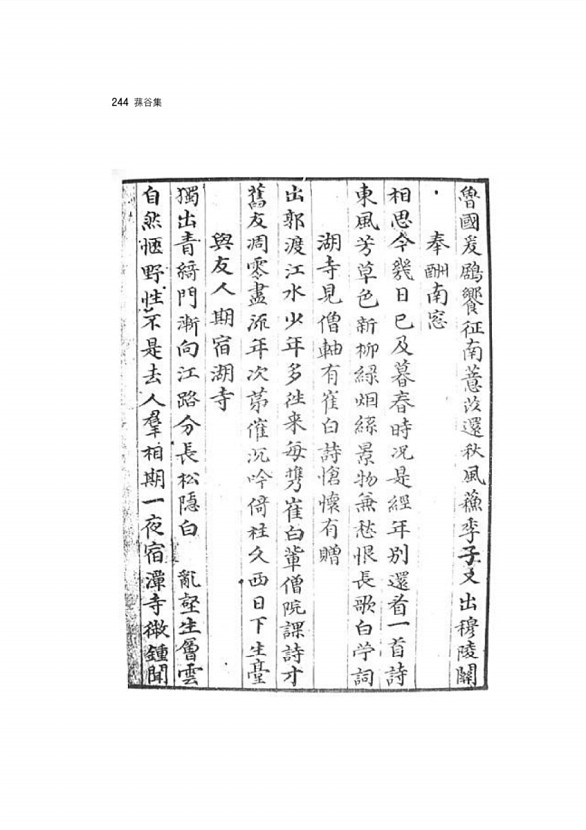 244 蓀谷集
魯國爰鶢饗征南薏苡還秋風蘓季子又出穆陵關
奉酬南窓
相思今幾日已及暮春時况是經年別還看一首詩
東風芳草色新柳綠烟絲景物兼愁恨長歌白苧詞
湖寺見僧軸有崔白詩愴懷有贈
出郭渡江水少年多徃来每携崔白輩僧院課詩才
舊友凋零盡流年次苐催沉吟倚柱久西日下生臺
與友人期宿湖寺
獨出青綺門漸向江路分長松隱白 亂壑生層雲
自然愜野性不是去人羣相期一夜宿潭寺微鍾聞